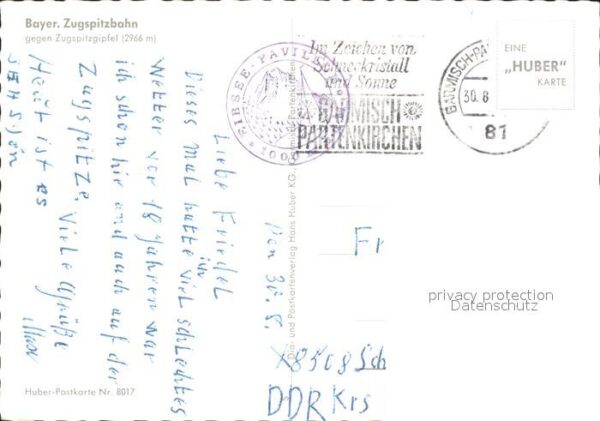 Bayer. Zugspitzbahn
gegen Zugspitzgipfel (2966 m)
Den 30. 8.
Liebe Friedel
Dieses mal hatte ich viel schlechtes
Wetter vor 18 Jahren war
ich schon hier und auch auf der
Zugspitze. Viele Grüße
Heut ist es
sehr schön
EIBSEE-PAVILLON
1000
Im Zeichen von
Schneekristall
und Sonne
GARMISCH
PARTENKIRCHEN
GARMISCH-PA
30.8
81
EINE
„HUBER"
KARTE
Dia- und Postkartenverlag Hans Huber KG, Garmisch-Partenkirchen
Fr
X8508 Sch
DDR Krs
privacy protection
Datenschutz
Huber-Postkarte Nr. 8017